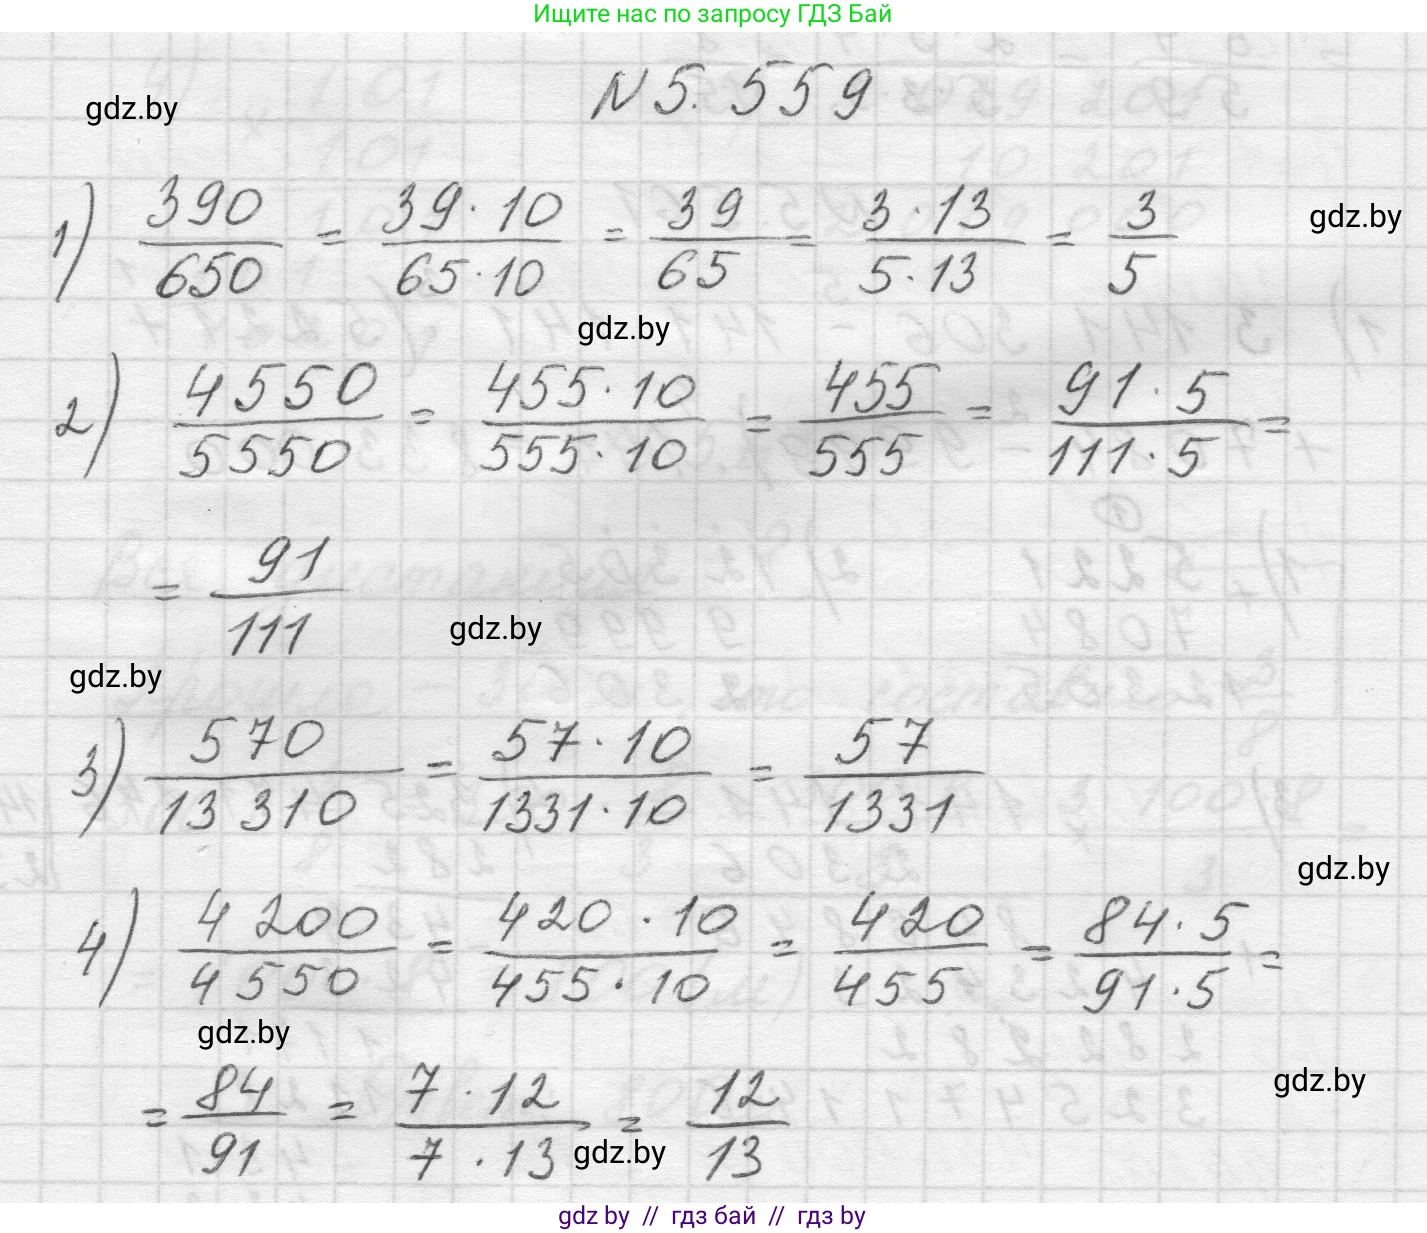 Ищите нас по запросу ГДЗ Бай
N 5.559
gdz.by
1) 390/650 = 39·10/65·10 = 39/65 = 3·13/5·13 = 3/5
gdz.by
gdz.by
2) 4550/5550 = 455·10/555·10 = 455/555 = 91·5/111·5 =
= 91/111
gdz.by
gdz.by
3) 570/13 310 = 57·10/1331·10 = 57/1331
gdz.by
4) 4 200/4 550 = 420·10/455·10 = 420/455 = 84·5/91·5 =
gdz.by
= 84/91 = 7·12/7·13 = 12/13
gdz.by
gdz.by
gdz by // гдз бай // гдз by